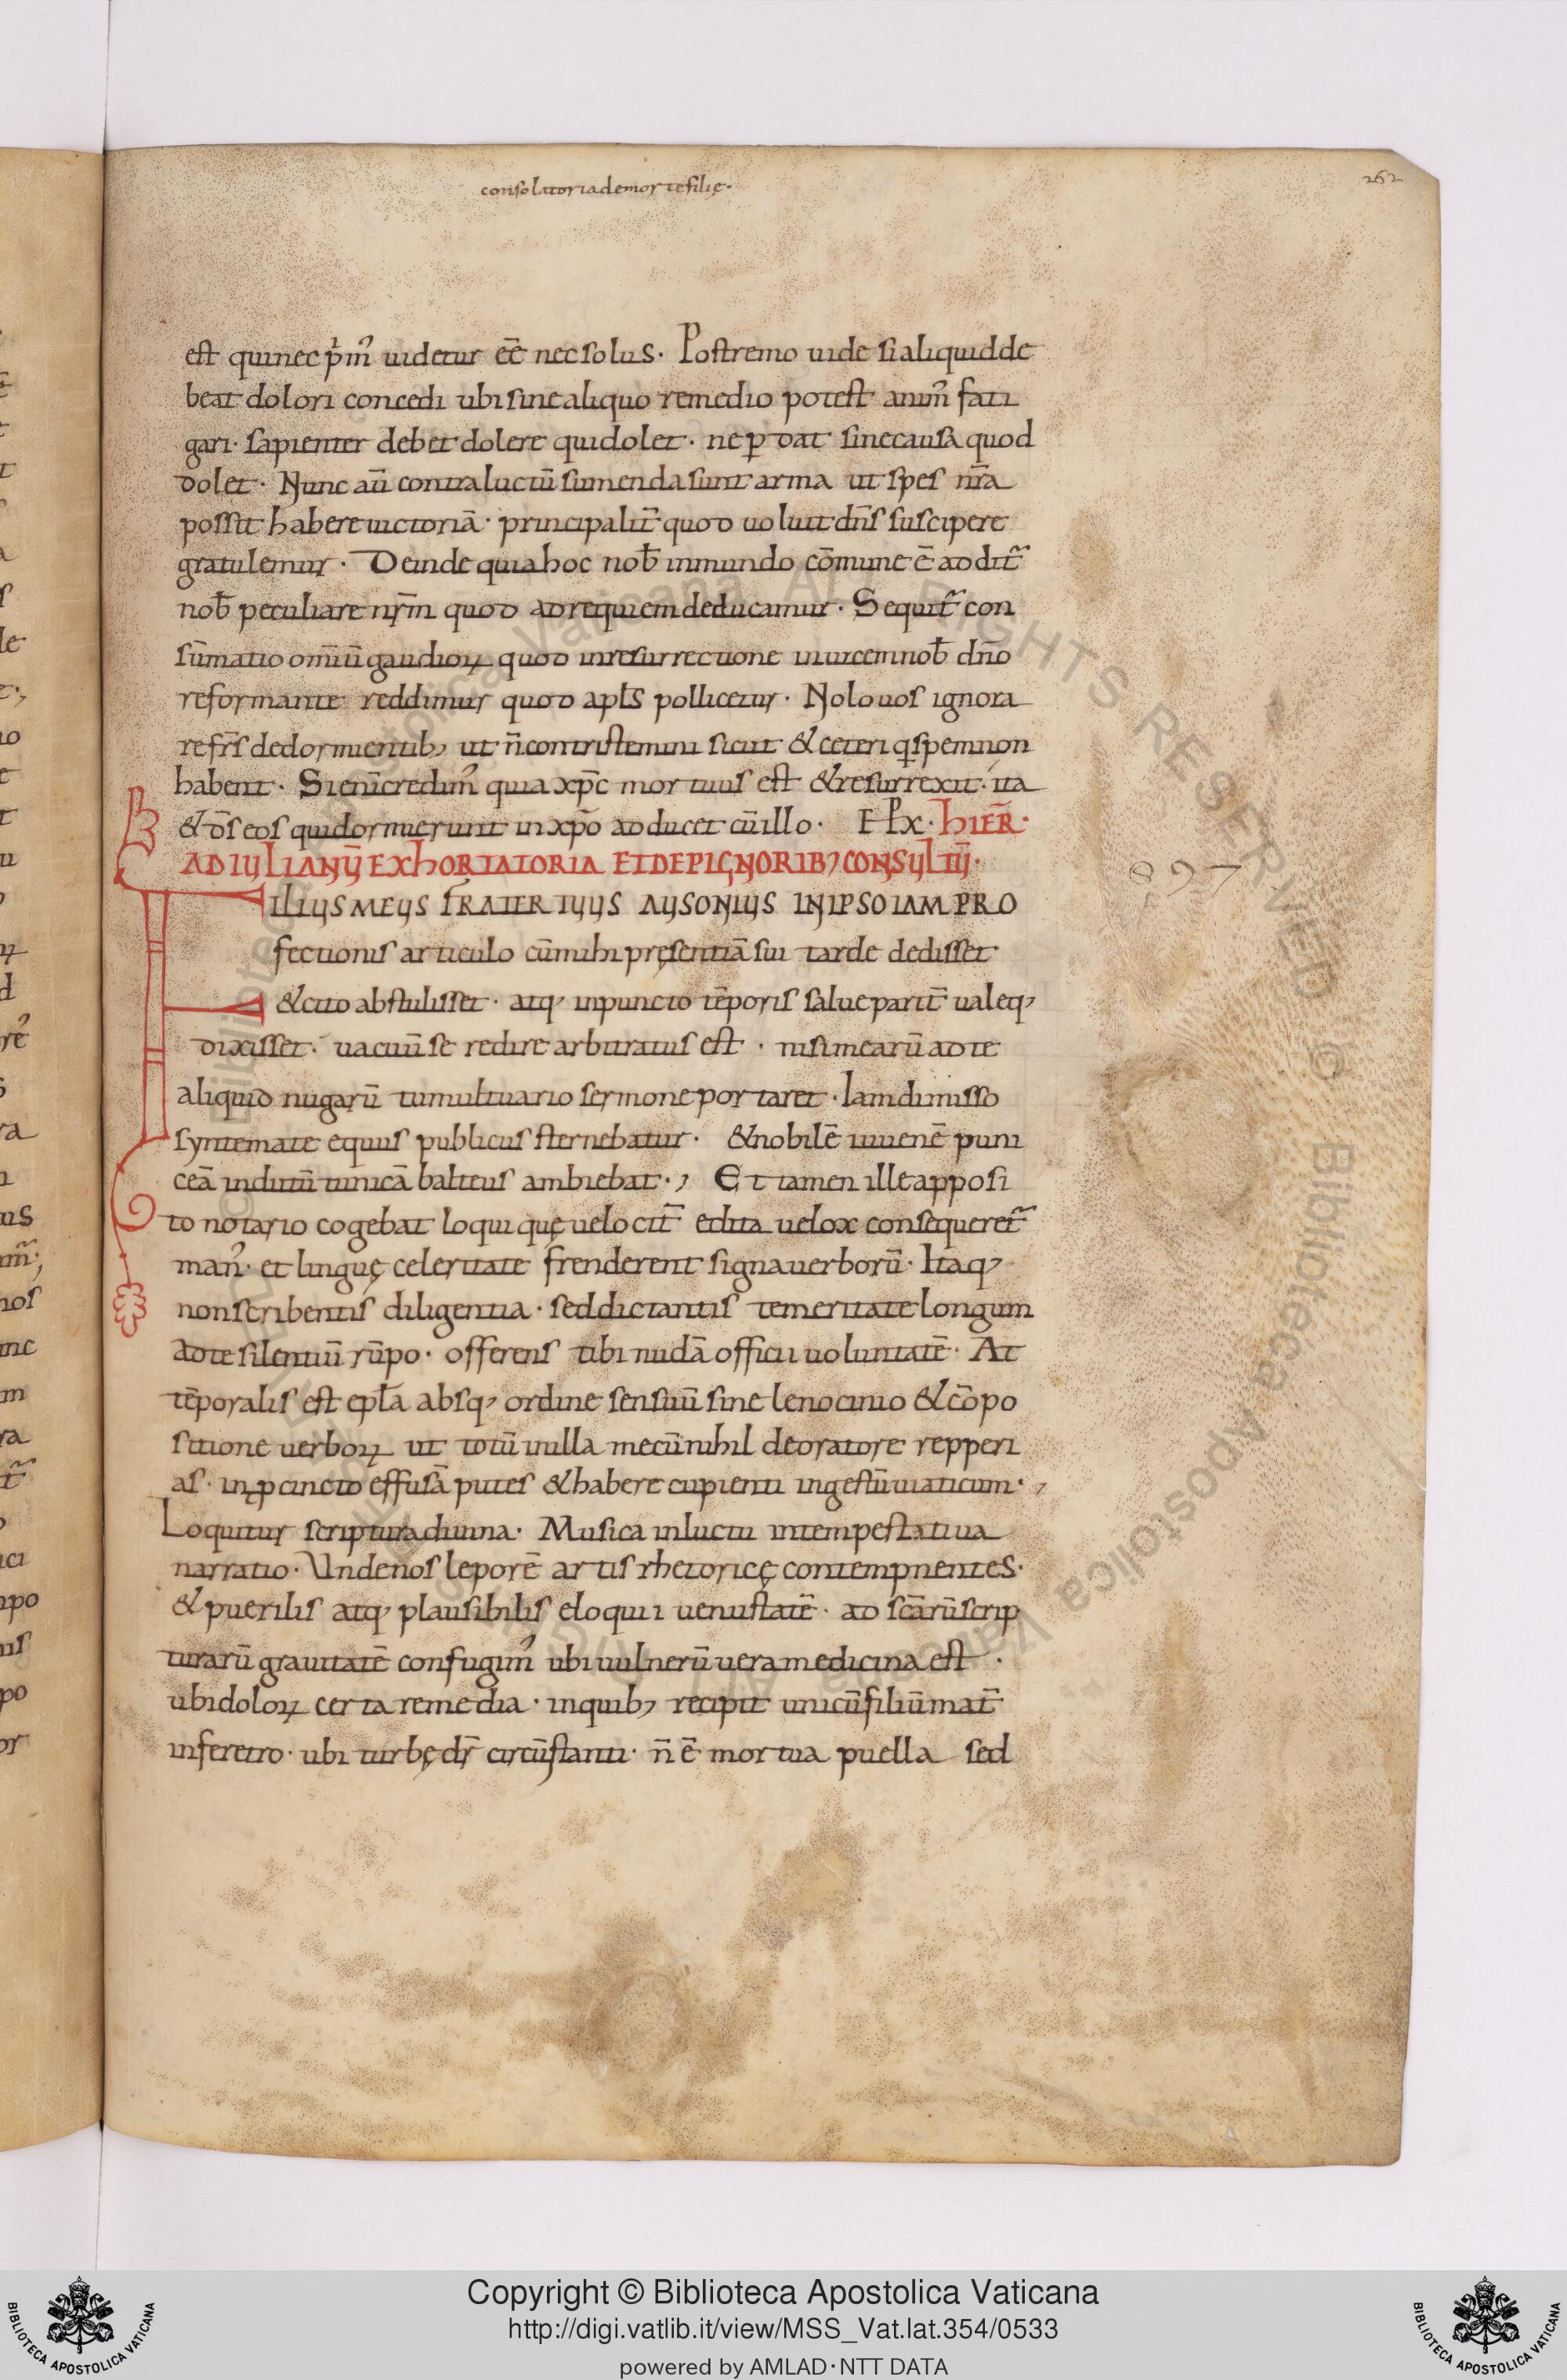 consolatoria de morte filię.
262
est qui nec p̄m᾽ uidetur eē nec solus. Postremo uide si aliquid de
beat dolori concedi ubi sine aliquo remedio potest anim̄᾽ fati
gari. sapienter debet dolere qui dolet. ne ꝑdat sine causa quod
dolet. Nunc aū contra luctū sumenda sunt arma ut spes nr̄a
possit habere uictoriā. principalit̄ quod uoluit dn̄s suscipere
gratulemur. Deinde quia hoc nob̄ in mundo cōmune ē addit̄
nob̄ peculiare nr̄m quod ad requiem deducamur. Sequit̄ con
sūmatio omīū gaudioꝝ quod in resurrectione inuicem nob̄ dn̄o
reformante reddimur quod apl̄s pollicetur. Nolo uos ignora
re fr̄s de dormientib; ut n̄ contristemini sicut & ceteri q̄ spem non
habent. Si enī credim᾽ quia xp̄c mortuus est & resurrexit. ita
& d̄s eos qui dormierunt in xp̄o adducet cū illo. EPLX. HIER̄.
AD IULIANŪ EXHORTATORIA ET DE PIGNORIB; CONSULTŪ.
FILIUS MEUS FRATER TUUS AUSONIUS IN IPSO IAM PRO
fectionis articulo cū mihi pręsentiā sui tarde dedisset
& cito abstulisset. atq; in puncto tēporis salue parit̄ ualeq;
dixisset. uacuū se redire arbitratus est. nisi mearū ad te
aliquid nugarū tumultuario sermone portaret. Iam dimisso
syntemate equus publicus sternebatur. & nobilē iuuenē puni
ceā indutū tunicā balteus ambiebat.; Et tamen ille apposi
to notario cogebat loqui quę uelocit̄ edita uelox consequeret̄
man᾽. et linguę celeritate frenderent signa uerborū. Itaq;
non scribentis diligentia. sed dictantis temeritate longum
ad te silentiū rūpo. offerens tibi nudā officii uoluntatē. At
tēporalis est epl̄a absq; ordine sensuū sine lenocinio & cōpo
sitione uerboꝝ ut totū in illa mecū nihil de oratore repperi
as. in ꝓcinctu effusā putes & habere cupienti ingestū uiaticum.;
Loquitur scriptura diuina. Musica in luctu intempestatiua
narratio. Unde nos leporē artis rhetoricę contempnentes.
& puerilis atq; plausibilis eloquii uenustatē. ad sc̄arū scrip
turarū grauitatē confugim᾽ ubi uulnerū uera medicina est.
ubi doloꝝ certa remedia. in quib; recipit unicū filiū mat̄
in feretro. ubi turbę dr̄ circūstanti. n̄ ē mortua puella sed
897
Copyright © Biblioteca Apostolica Vaticana
http://digi.vatlib.it/view/MSS_Vat.lat.354/0533
powered by AMLAD·NTT DATA